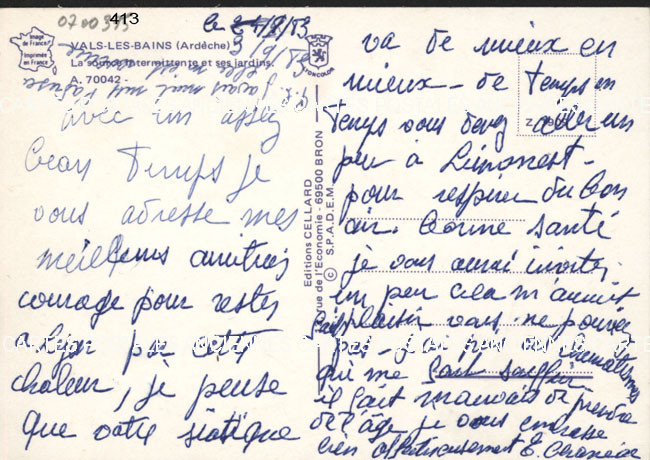 0700373
413
Image de France
Imprimée en France
VALS-LES-BAINS (Ardèche)
La source intermittente et ses jardins.
A. 70042 -
le 2 /9/83
avec un assez
beau temps je
vous adresse mes
meilleures amitiés
courage pour rester
a Lyon par cette
chaleur, je pense
que votre siatique
Editions CELLARD
rue de l'Economie - 69500 BRON
© S.P.A.D.E.M.
va de mieux en
mieux - de temps en
temps vous devez aller un
peu à Limonest -
pour respirer du bon
air. bonne santé
je vous aurai invitée
un peu cela m'aurait
fait plaisir vous ne pouviez
pas - j'ai un rhumatisme
qui me fait souffrir
il fait mauvais de prendre
de l'âge je vous embrasse
bien affectueusement E.